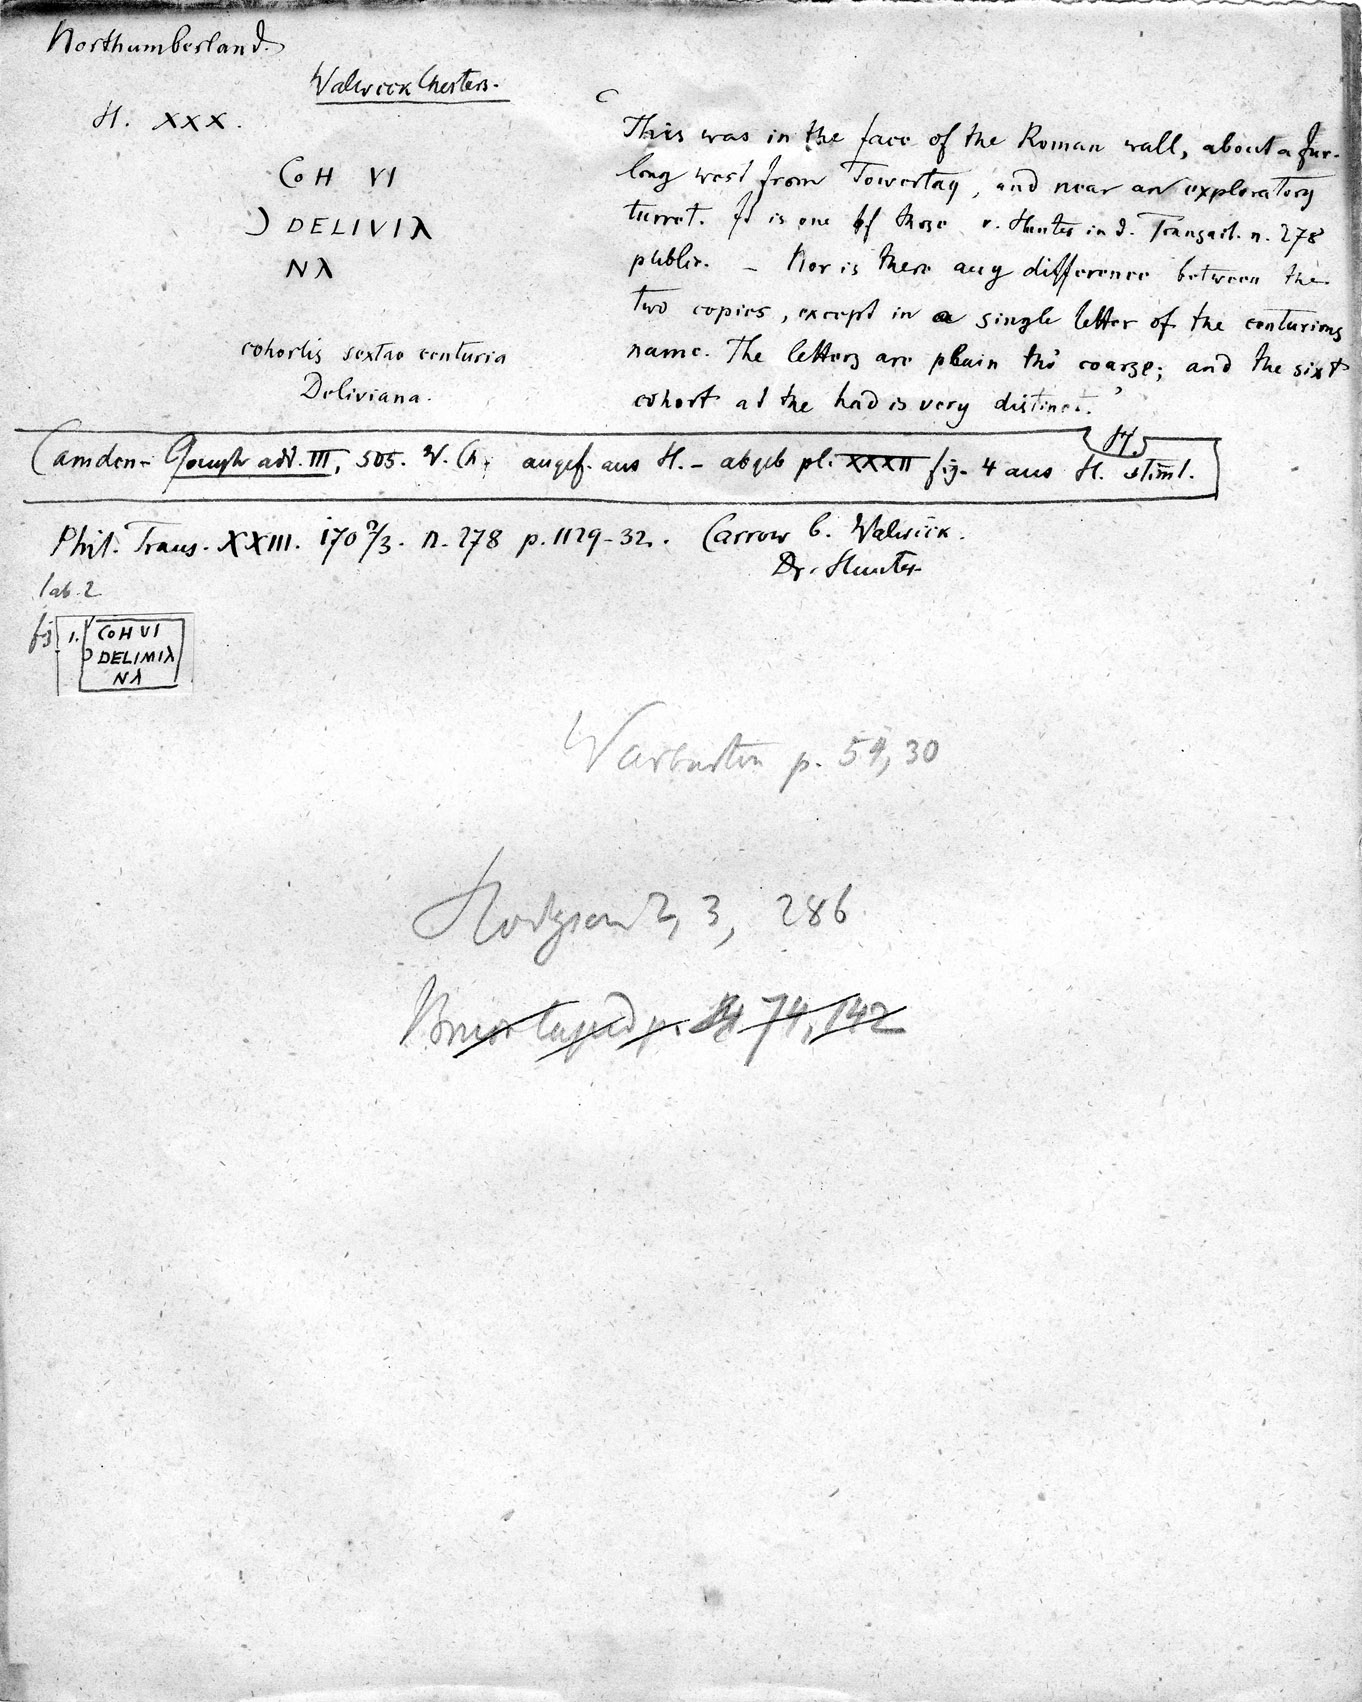 Northumberland.
Walwick Chesters.
H. XXX.
COH VI
Ɔ DELIVIλ
Nλ
cohortis sextae centuria
Deliviana.
‘This was in the face of the Roman wall, about a fur-
long west from Towertay, and near an exploratory
turret. It is one of those v. Hunter in d. Transact. n. 278
public. – Nor is there any difference between the
two copies, except in a single letter of the centurions
name. The letters are plain tho' coarse; and the sixt
cohort at the hed is very distinct.’
Camden-Gough add. III, 505. W. Ch. angef. aus H. – abgeb pl. XXXII fig. 4 aus H. stimt.
Phil. Trans. XXIII. 1702/3. n. 278 p. 1129-32. Carrow b. Walwick.
Dr. Hunter
tab. 2
fig. 1. COH VI
Ɔ DELIMIλ
Nλ
Warburton p. 54, 30
Hodgson 2, 3, 286
74, 142